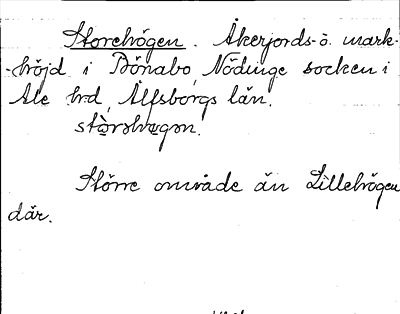 Storehögen. Åkerjords- o. mark-
-höjd i Bönabo, Nödinge socken i
Ale hrd, Älfsborgs län.
Större område än Lillehögen
där.